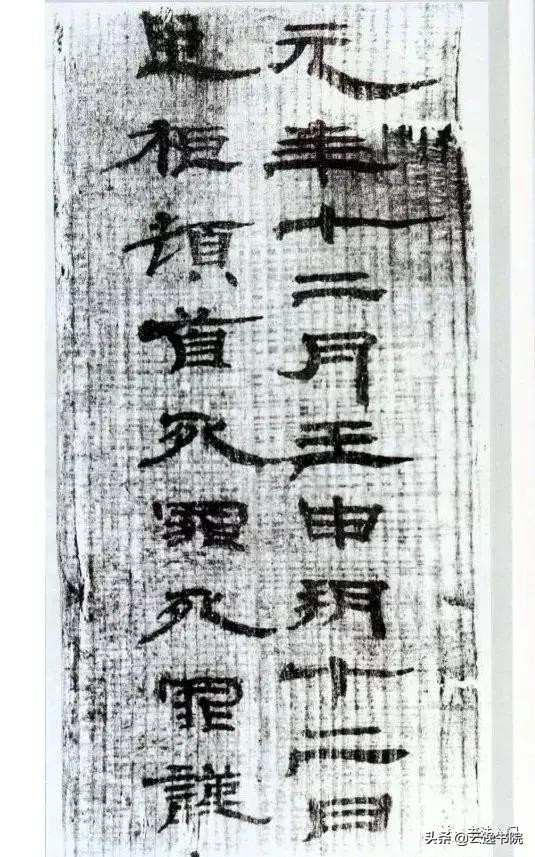 元年十二月壬申朔十二日
頓首死罪死罪謹
头条 @云逸书院